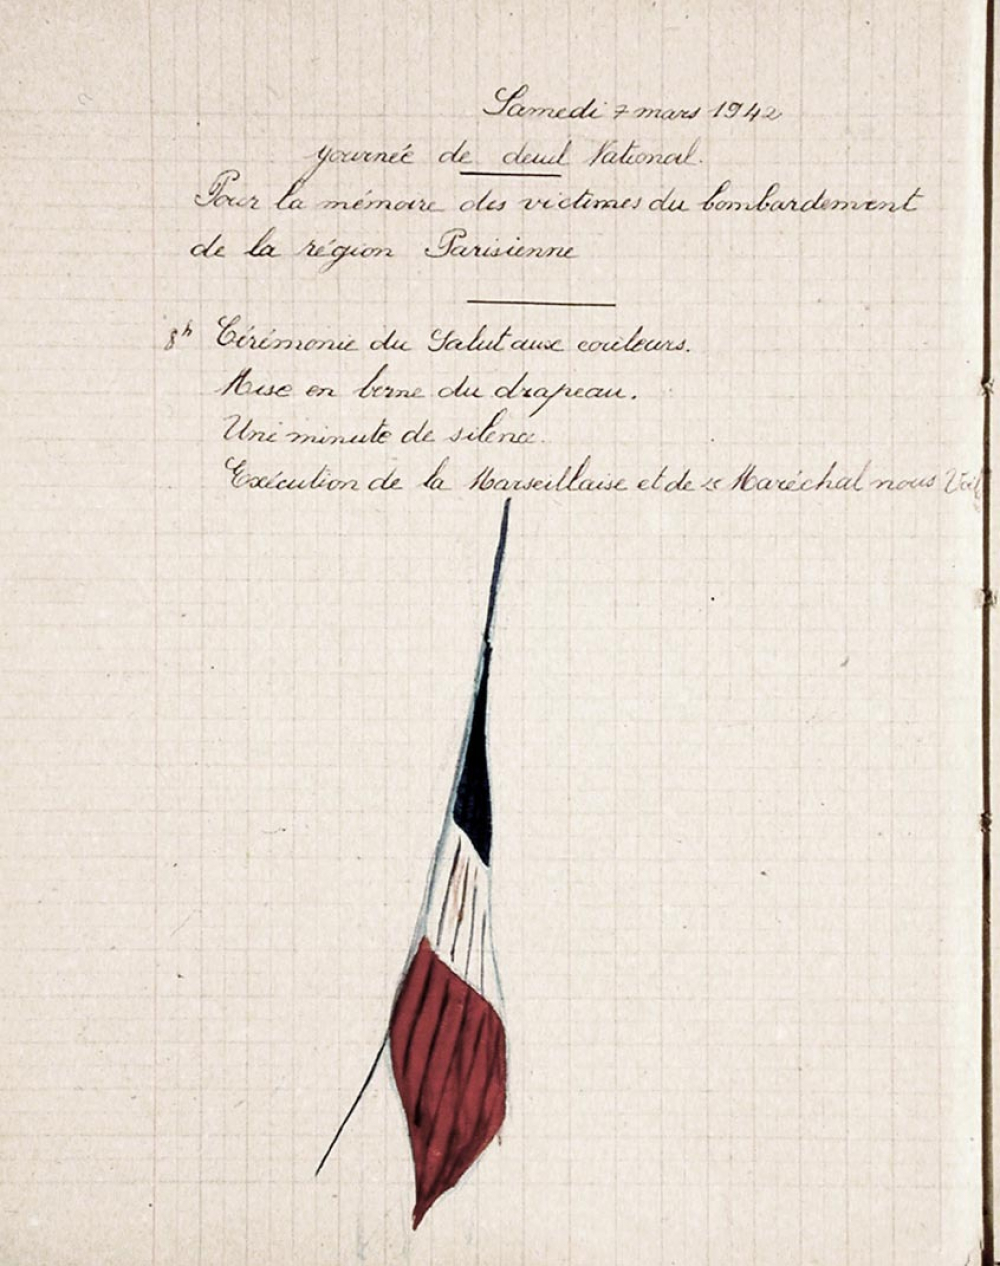 Samedi 7 mars 1942
Journée de deuil National.
Pour la mémoire des victimes du bombardement
de la région Parisienne
8h Cérémonie du Salut aux couleurs.
Mise en berne du drapeau.
Une minute de silence.
Exécution de la Marseillaise et de Maréchal nous